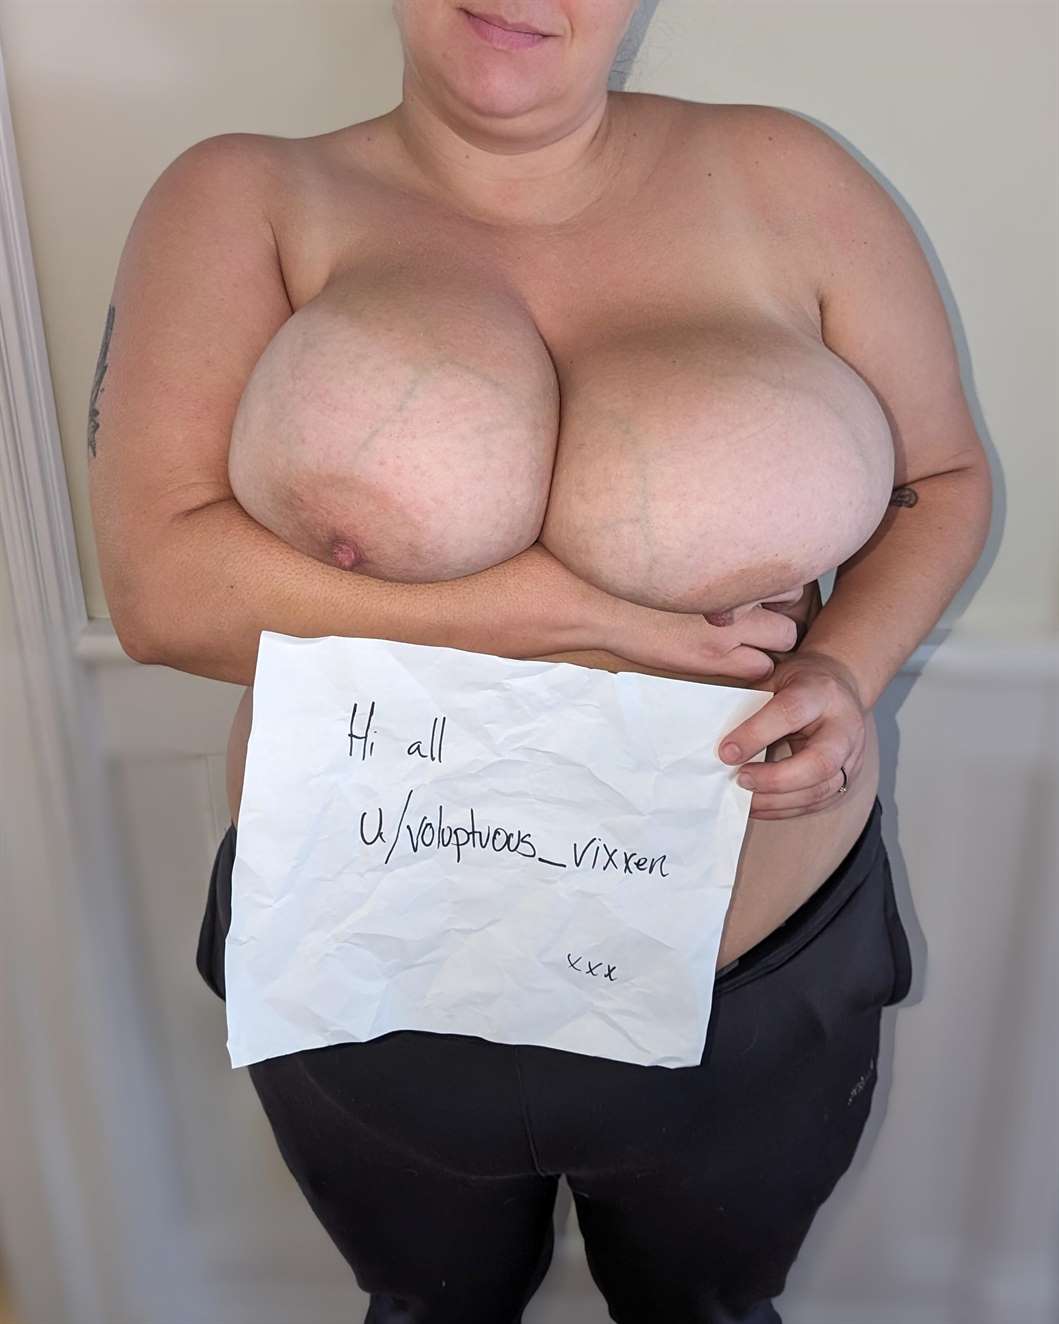 Hi all
u/voluptuous_vixxen
xxx